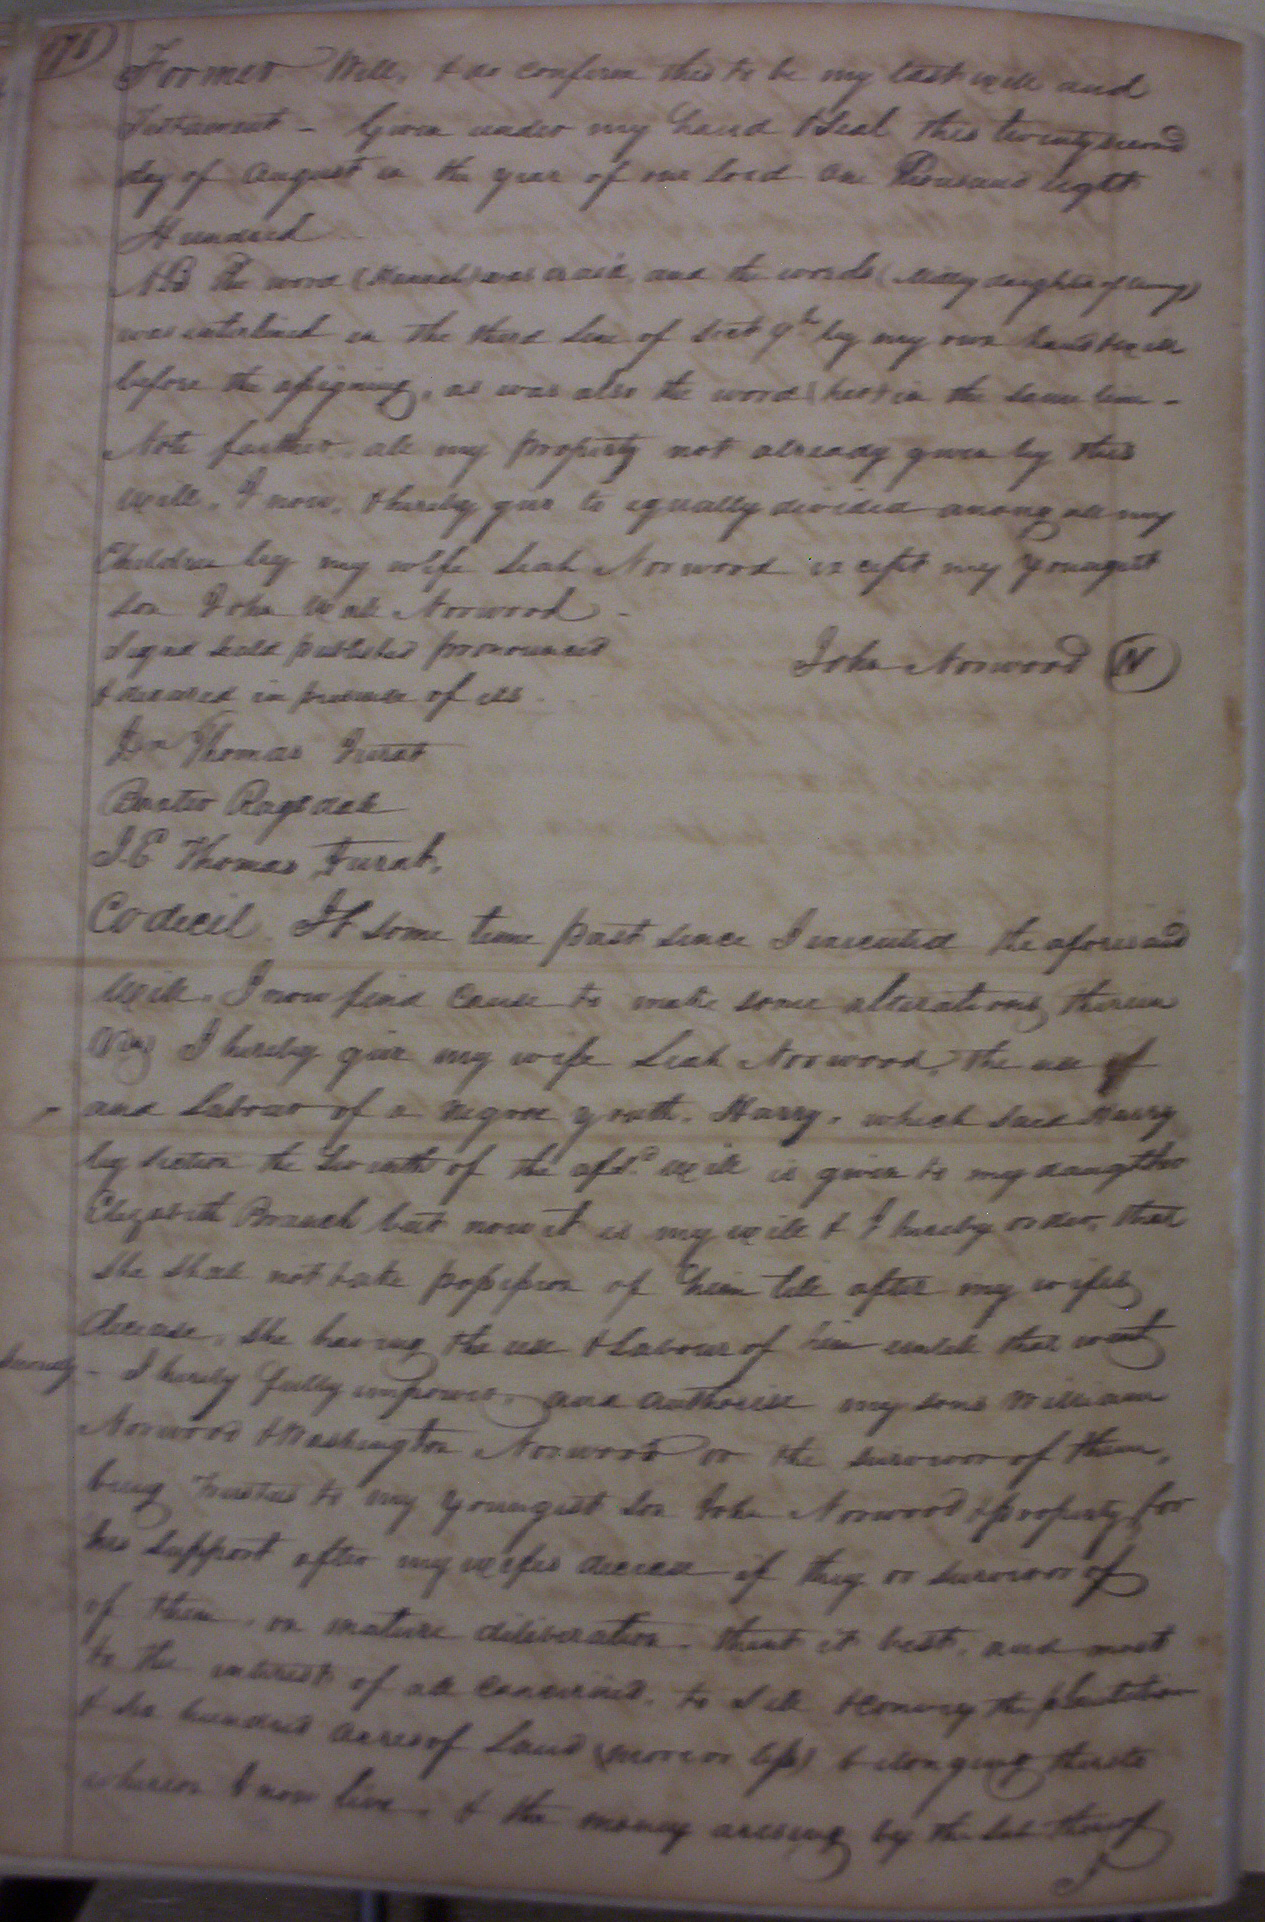 Former Will, & do confirm this to be my last will and
Testament - Given under my hand & Seal this twenty second
day of August in the year of our lord one Thousand eight
Hundred
NB The word (Hannah) was erasd, and the words (Milly daughter of
was interlined in the third line of Sect 9th by my own hand
before the assigning, as was also the word (her) in the same line -
Note farther, all my property not already given by this
Will, I now, & hereby give to equally divided among all my
Children by my wife Leah Norwood except my youngest
son John Wall Norwood -
Signd Seald published pronounced
John Norwood (N)
& declared in presence of us.
Thomas
Ragsdale
J. E Thomas
Codecil. It some time past since I executed the aforesaid
Will. I now find cause to make some alterations therein
(Viz) I hereby give my wife Leah Norwood, the use of
and Labour of a Negroe youth. Harry, which said Harry
by section the of the afsd. Will is given to my daughter
Elizabeth Branch but now it is my will & I hereby order, that
She shall not take possession of him till after my wifes
decease, She having the use & Labour of him untill that event
Secondly - I hereby fully impower, and authorise my sons William
Norwood & Washington Norwood or the survivor of them,
being Trustees to my youngest son John Norwood & property for
his Support after my wifes decease if they or survivor of
of them, on mature deliberation, think it best, and most
to the interest of all concerned, to Sell & convey the plantation
& six hundred acres of Land (more or less) belonging thereto
whereon I now live, & the money arising by the sale thereof